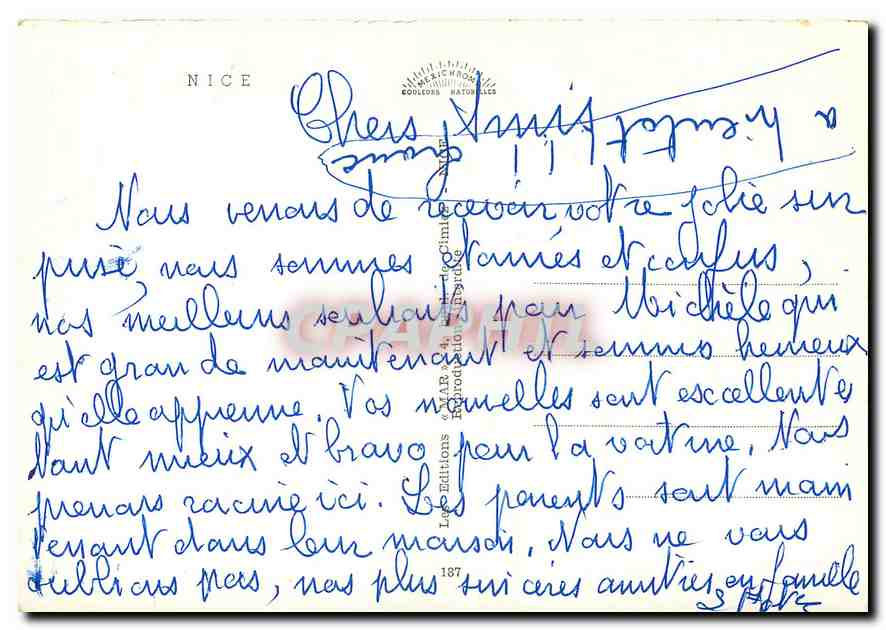 NICE
MEXICHROME
COULEURS NATURELLES
Chers Amis
a bientot !!
Nous venons de recevoir votre jolie sur
prise, nous sommes etonnés et confus,
nos meilleurs souhaits pour Michèle qui
est grande maintenant et sommes heureux
qu'elle apprenne. Vos nouvelles sont excellentes
tant mieux et bravo pour la voiture. Nous
prenons racine ici. Les parents sont main
tenant dans leur maison. Nous ne vous
oublions pas, nos plus sincères amitiés en famille
Les Editions « MAR » 4, de Cimiez - NICE
Reproduction Interdite
187
CPAPHIL